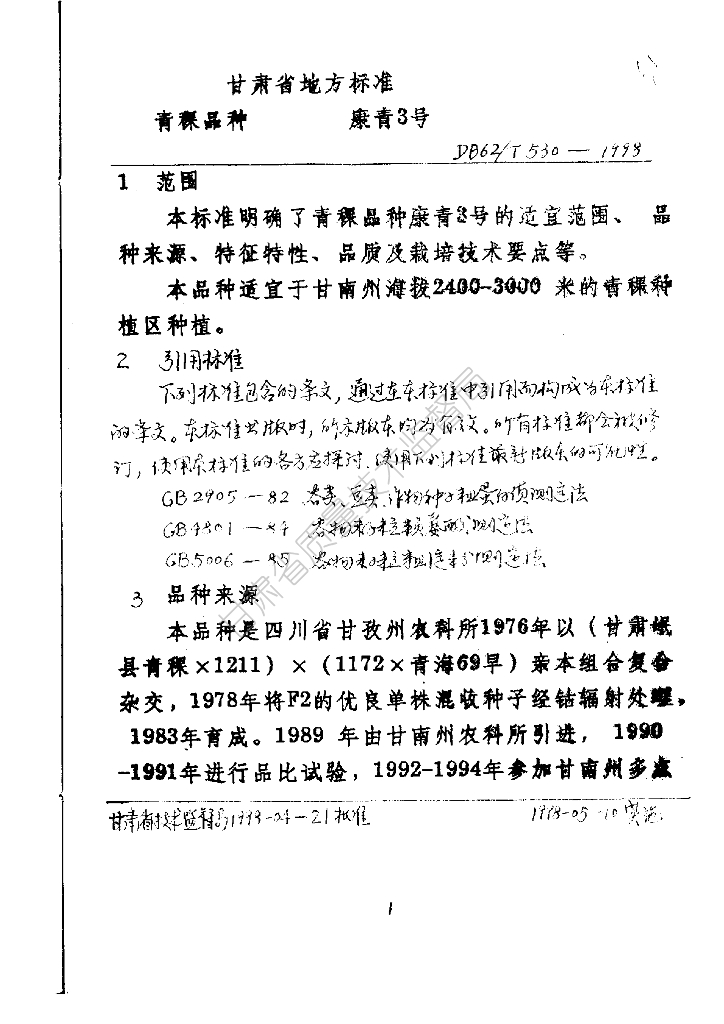 甘肃省地方标准
青稞品种 康青3号
DB62/T 530—1998
1 范围
本标准明确了青稞品种康青3号的适宜范围、 品
种来源、特征特性、品质及栽培技术要点等。
本品种适宜于甘南州海拨2400-3000 米的青稞种
植区种植。
2 引用标准
下列标准包含的条文,通过在本标准中引用而构成为本标准
的条文。本标准出版时,所示版本均为有效。所有标准都会被修
订,使用本标准的各方应探讨、使用下列标准最新版本的可能性。
GB2905—82 谷类、豆类作物种子粗蛋白质测定法
GB4801—84 谷物籽粒赖氨酸测定法
GB5006—85 谷物籽粒粗淀粉测定法
3 品种来源
本品种是四川省甘孜州农科所1976年以(甘肃岷
县青稞×1211)×(1172×青海69早)亲本组合复合
杂交,1978年将F2的优良单株混收种子经钴辐射处理,
1983年育成。1989 年由甘南州农科所引进, 1990
-1991年进行品比试验,1992-1994年参加甘南州多点
甘肃省技术监督局1998-04-21批准 1998-05-10实施
1
甘肃省质量技术监督局